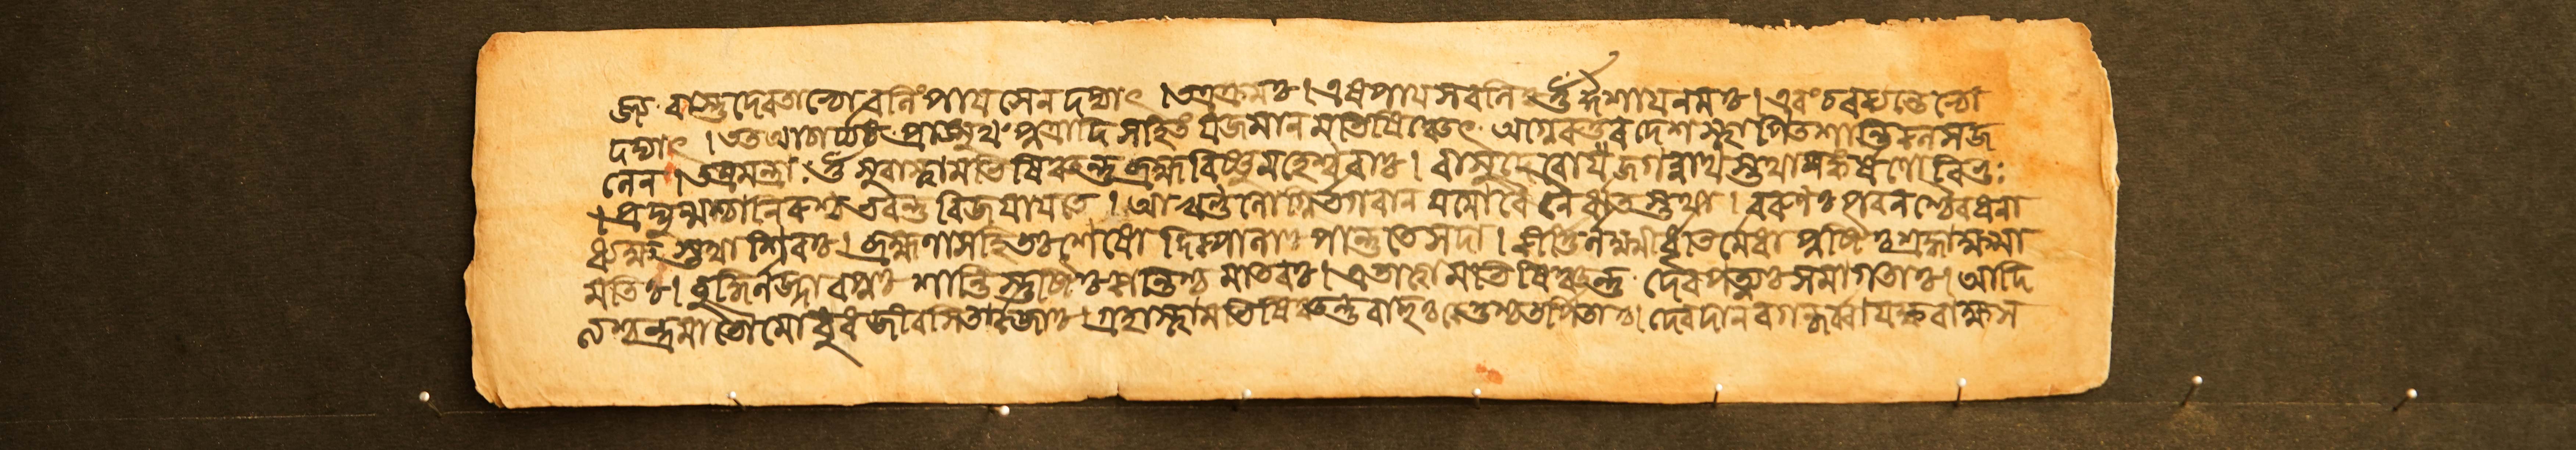 জ্য. বাস্তুদেবতাভ্যো বলিং পায়সেন দদ্যাৎ । এষ পায়সবলি দশায় নমঃ । এবং চরক্যাদিভ্যো
দদ্যাৎ । তত আচার্য্যঃ প্রাঙ্মুখং পুত্রাদি সহিতং যজমানমভিষিঞ্চেৎ. শান্তিকলসজ
লেন । তত্র মন্ত্রাঃ. ওঁ সুরাস্ত্বামভিষিঞ্চন্তু ব্রহ্মবিষ্ণুমহেশ্বরাঃ । বাসুদেবো জগন্নাথস্তথা সঙ্কর্ষণো বিভুঃ
। প্রদ্যুম্নশ্চানিরুদ্ধশ্চ ভবন্তু বিজয়ায় তে । আখণ্ডলোগ্নির্ভগবান যমো বৈ নৈর্ঋতস্তথা । বরুণঃ পবনশ্চৈব ধনা
ধ্যক্ষস্তথা শিবঃ । ব্রহ্মণা সহিতঃ শেষো দিক্পালাঃ পান্তু তে সদা । কীর্ত্তির্লক্ষ্মীর্ধৃতির্মেধা পুষ্টিঃ শ্রদ্ধা ক্ষমা
মতিঃ । বুদ্ধির্লজ্জা বপুঃ শান্তিস্তুষ্টিঃ কান্তিশ্চ মাতরঃ । এতাস্ত্বামভিষিঞ্চন্তু. দেবপত্ন্যঃ সমাগতাঃ । আদি
ত্যশ্চন্দ্রমা ভৌমো বুধজীবসিতার্কজাঃ । গ্রহাস্ত্বামভিষিঞ্চন্তু রাহুঃ কেতুশ্চ তর্পিতাঃ । দেবদানবগন্ধর্ব্বা যক্ষরাক্ষস